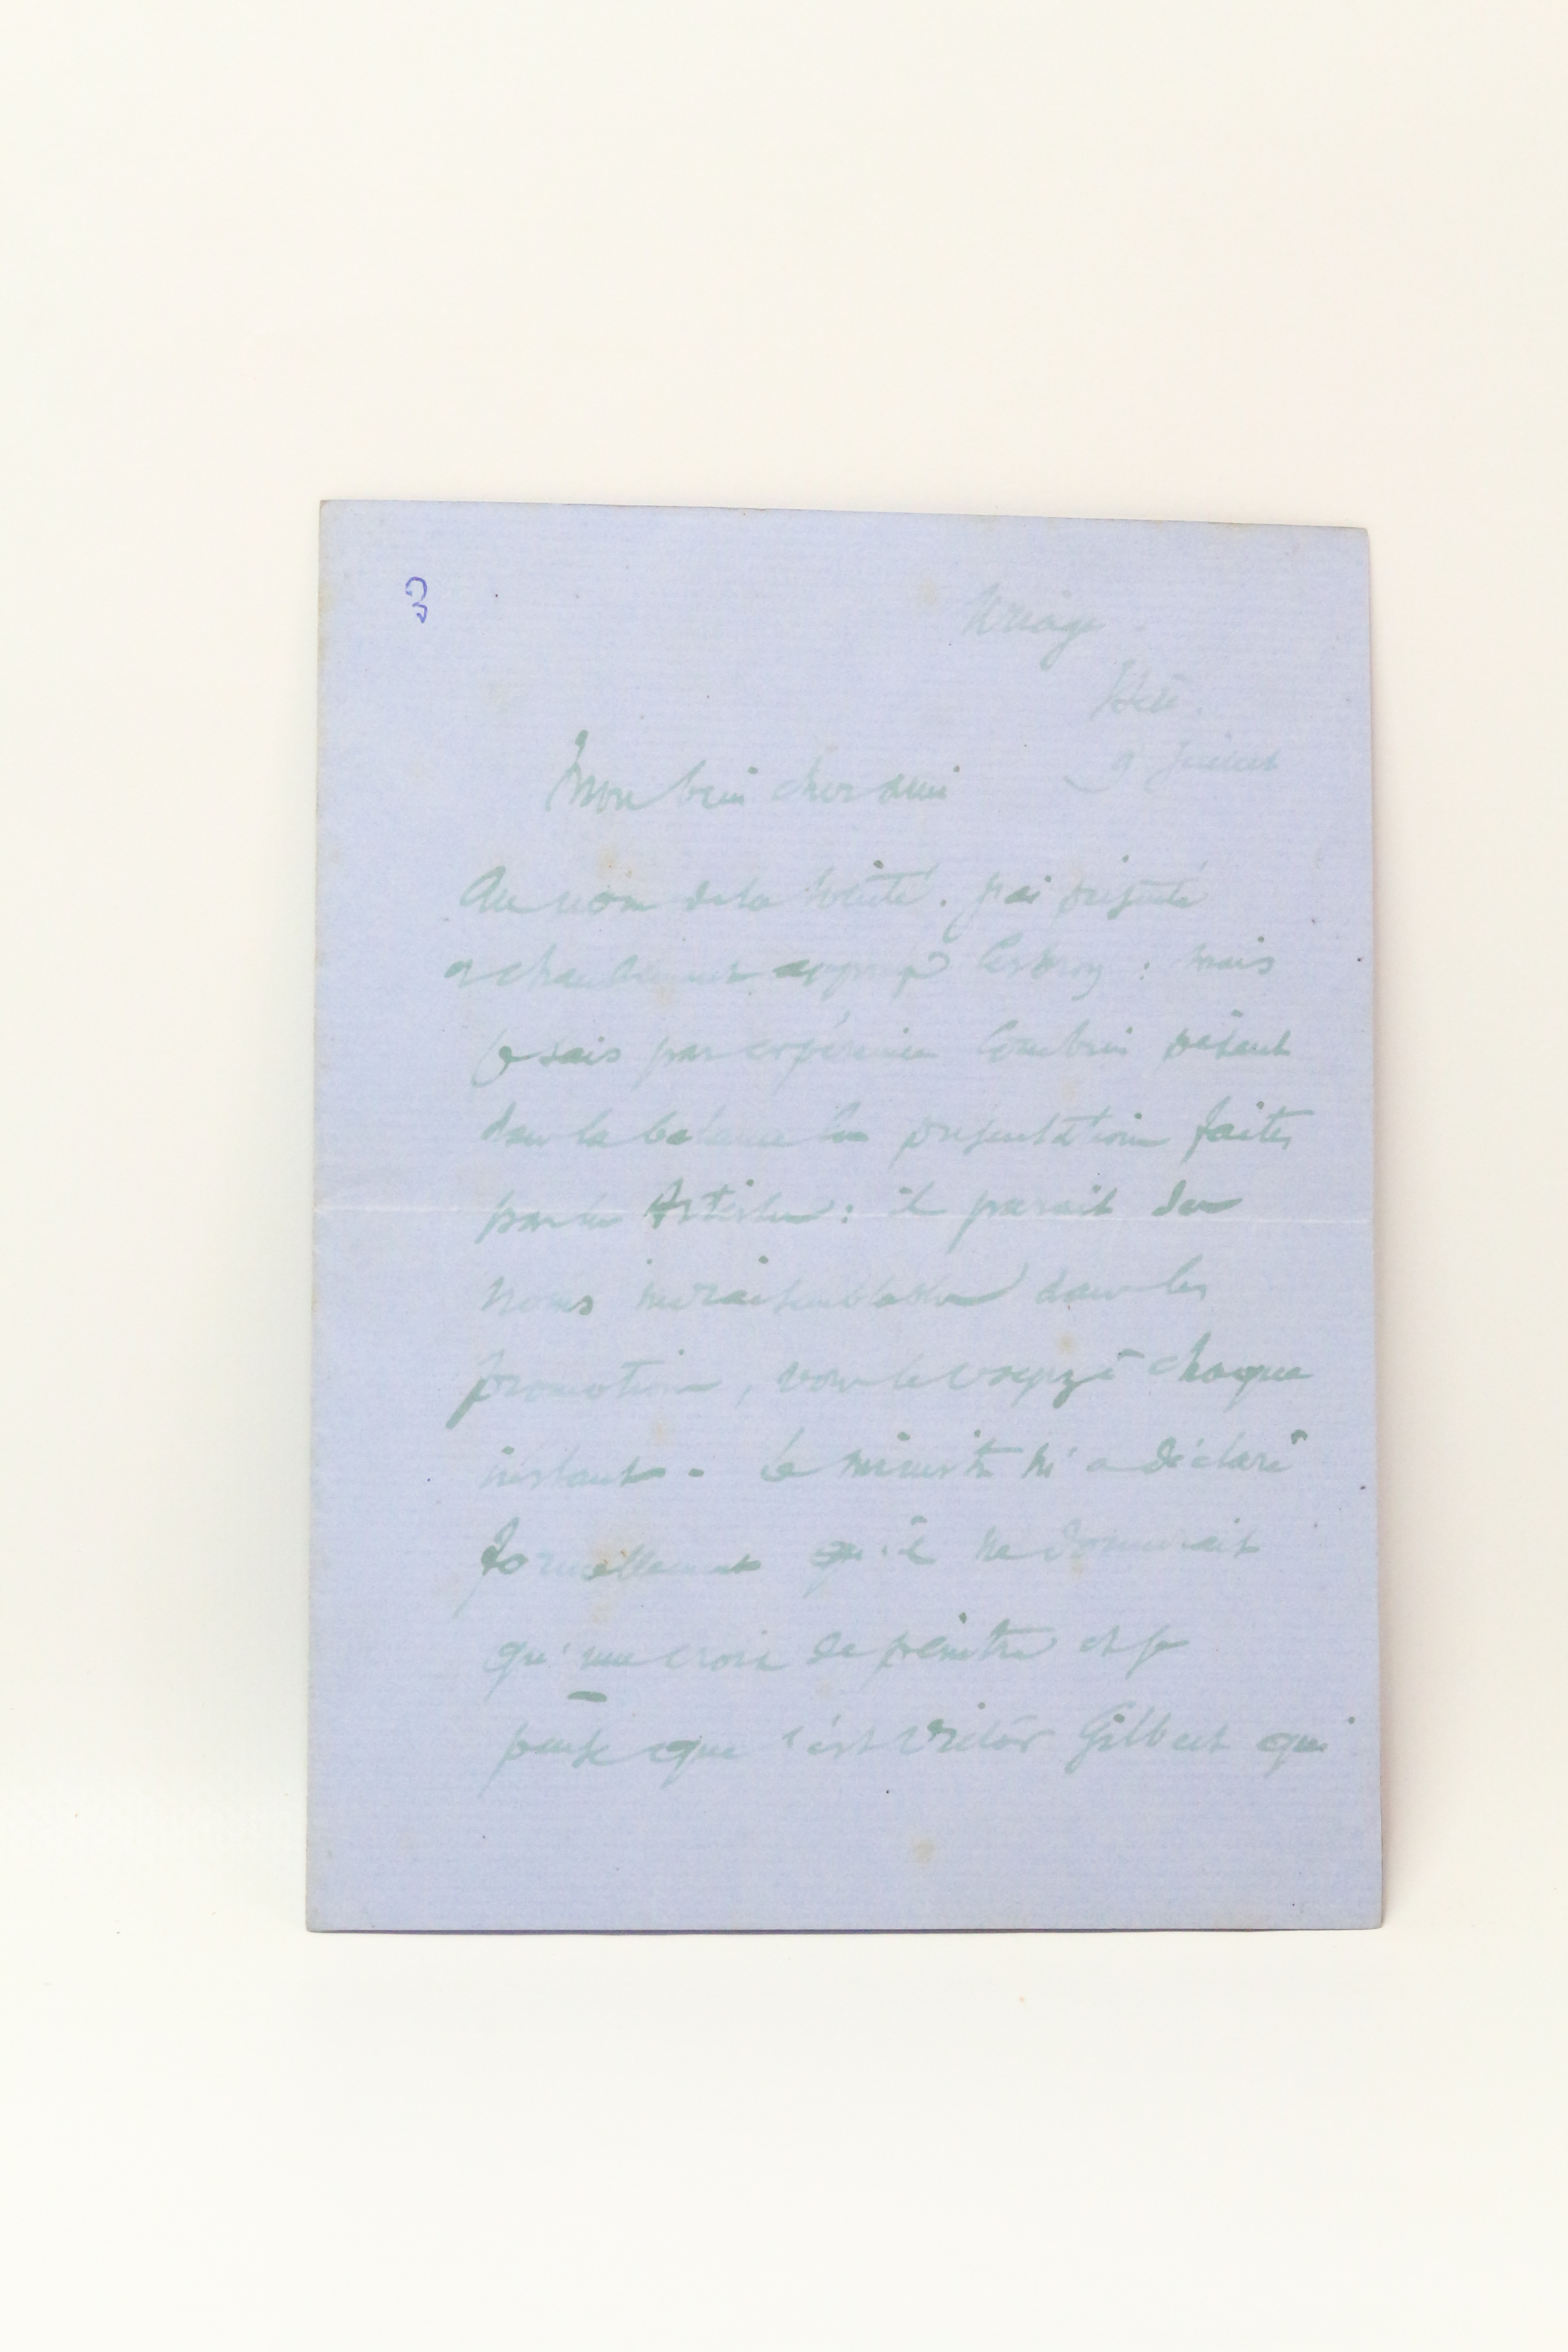 Uriage
9 Juillet
Mon bien cher ami
Au nom de la Société. j'ai présenté
et chaudement appuyé Lestroy : mais
je sais par expérience combien pèsent
dans la balance les présentations faites
par les Artistes : il parait des
noms invraisemblables dans les
promotions, vous le voyez à chaque
instant. Le ministre m'a déclaré
formellement qu'il ne donnerait
qu'une croix de peintre et je
pense que c'est Victor Gilbert qui